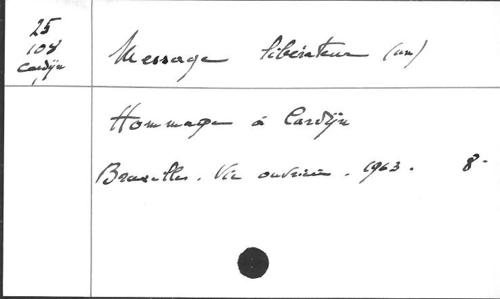 25
108
Cardijn
Message libérateur (un)
Hommage à Cardijn
Bruxelles. Vie ouvrière. 1963. 8-